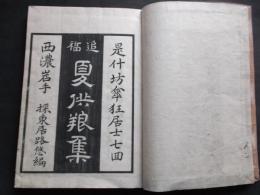 是什坊傘狂居士七回
追福
夏供粮集
西濃岩手 採東居路悠編